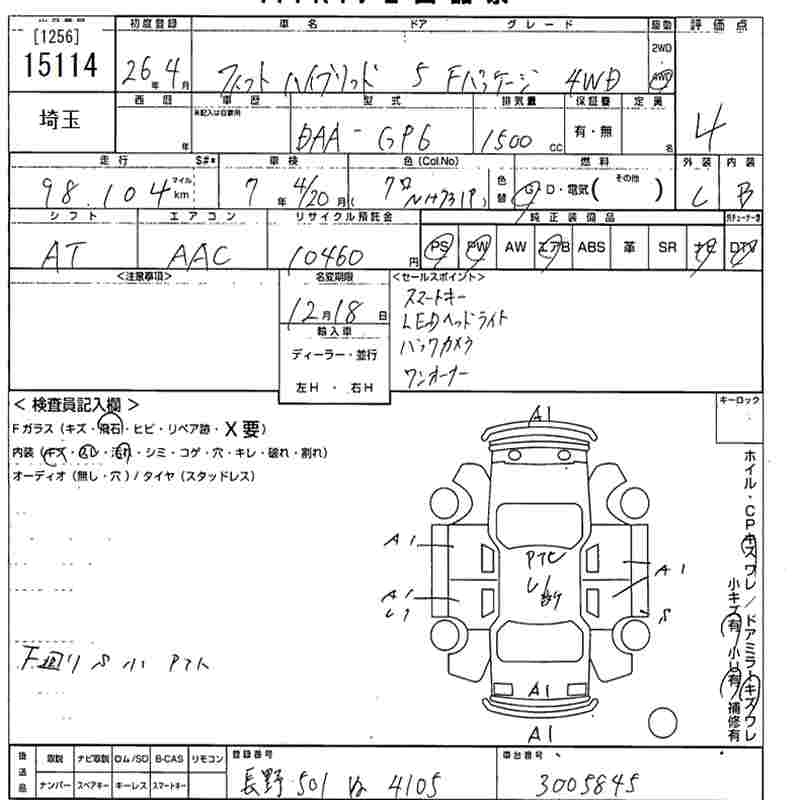 [1256]
15114
埼玉
初度登録 車名 ドア グレード 駆動 評価点
26年4月 フィット ハイブリッド 5 Fパッケージ 4WD
2WD
4WD
4
西暦 車歴 型式 排気量 保証書 定員
※記入は自家用
年 DAA-GP6 1500cc 有・無 名
走行 S#* 車検 色(Col.No) 燃料 外装 内装
98,104 マイル km 7年 4/20月 (クロ NH731P) 色替 G・D・電気( その他 ) C B
シフト エアコン リサイクル預託金 純正装備品
AT AAC 10460円 PS PW AW エアB ABS 革 SR ナビ DTV
<注意事項> 名変期限 <セールスポイント>
12月18日
スマートキー
LEDヘッドライト
バックカメラ
ワンオーナー
輸入車
ディーラー・並行
左H・右H
<検査員記入欄> キーロック
Fガラス(キズ・飛石・ヒビ・リペア跡・X要)
内装(キズ・スレ・汚れ・シミ・コゲ・穴・キレ・破れ・割れ)
オーディオ(無し・穴)/タイヤ(スタッドレス)
A1
A1
A1
A1
A1
A1
S
下回りS小
ホイル・CPキズワレ/ドアミラーキズワレ
小キズ有 小U有 補修有
後送品 取説 ナビ取説 ロム/SD B-CAS リモコン
ナンバー スペアキー キーレス スマートキー
登録番号 車台番号
長野 501 4105 3005845